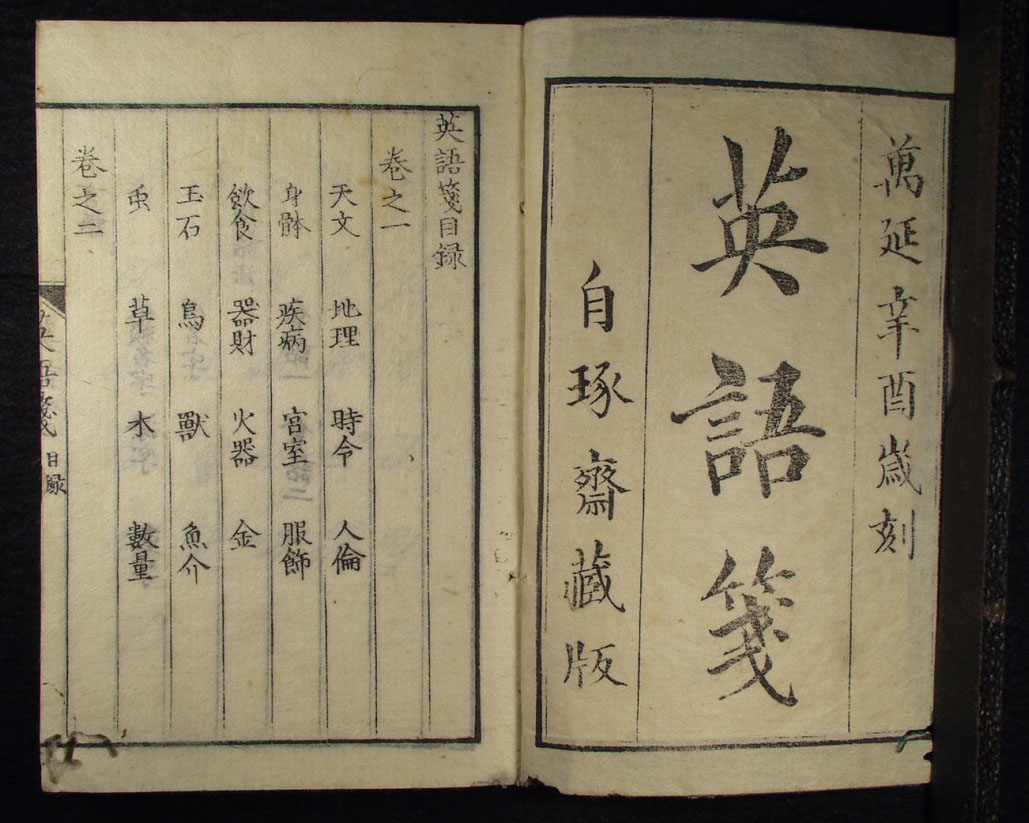 萬延辛酉歳刻
英語箋
自琢齋藏版
英語箋目録
巻之一
天文 地理 時令 人倫
身體 疾病 宮室 服飾
飲食 器財 火器 金
玉石 鳥 獸 魚介
虫 草 木 數量
巻之二
英語箋 目録